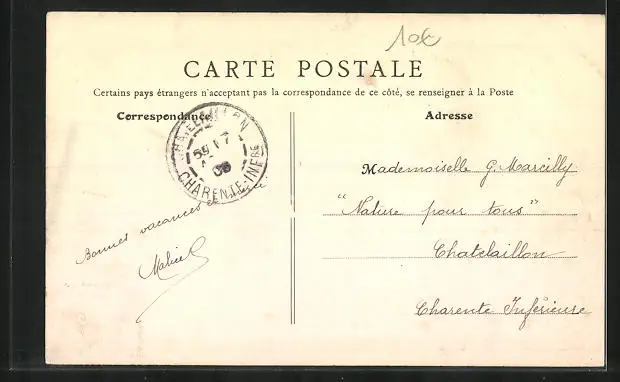 10€
CARTE POSTALE
Certains pays étrangers n'acceptant pas la correspondance de ce côté, se renseigner à la Poste
Correspondance
Adresse
CHATELAILLON
CHARENTE-INFRE
Mademoiselle G. Marcilly
"Nature pour tous"
Chatelaillon
Charente Inférieure
Bonnes vacances